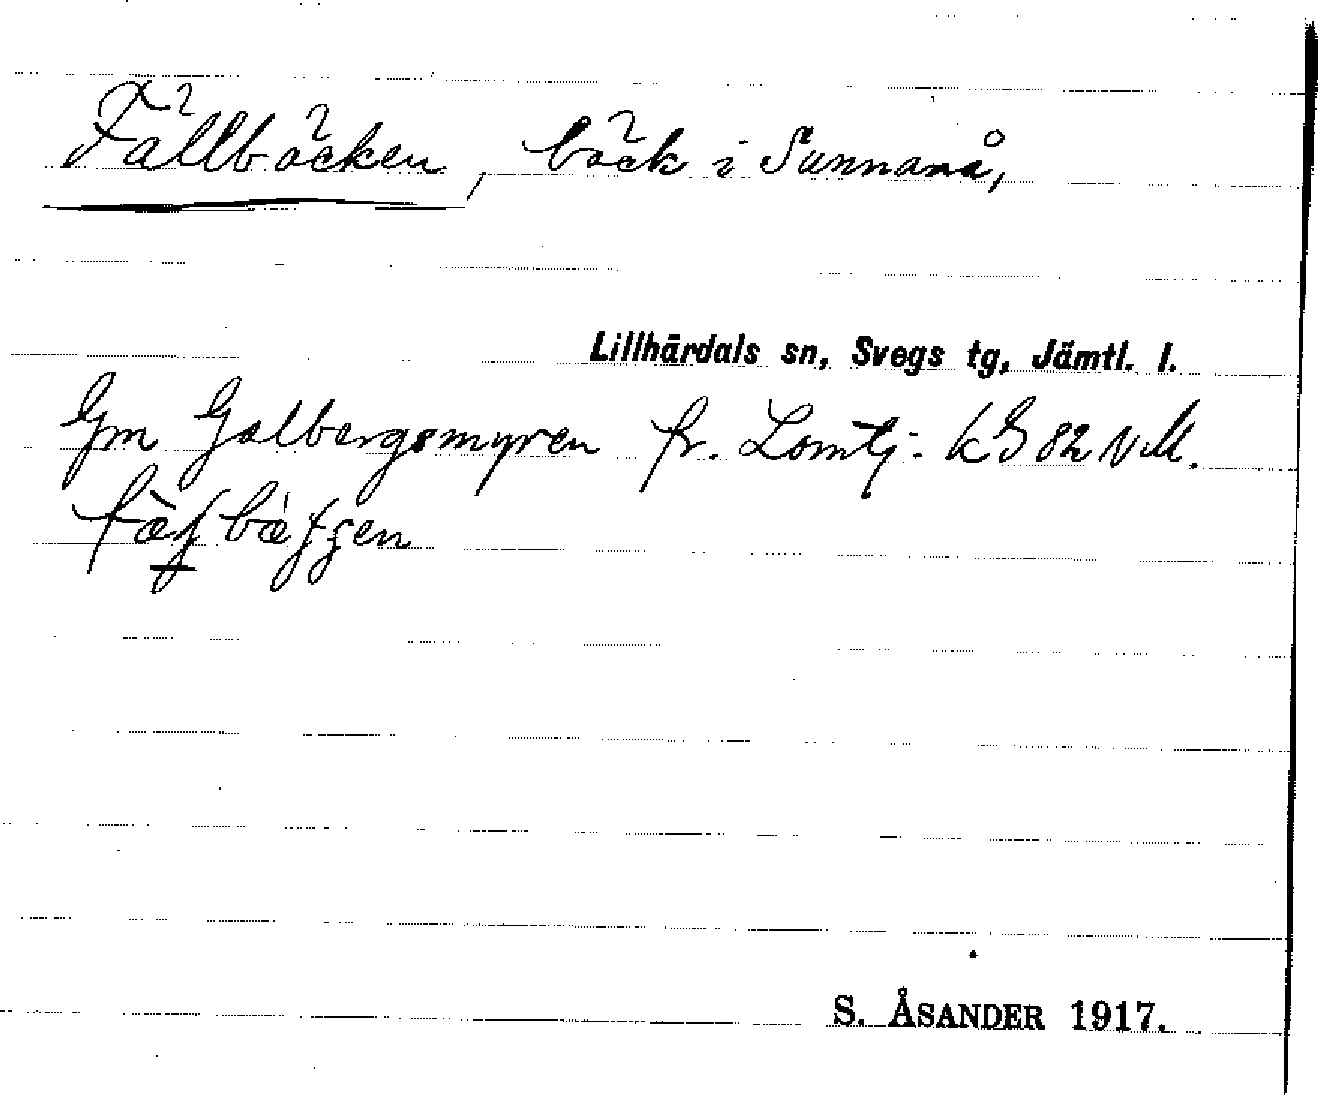 Fällbäcken, bäck i Sunnanå,
Lillhärdals sn, Svegs tg, Jämtl. l.
Gm Galbergsmyren fr. Lomtj.
S. ÅSANDER 1917.